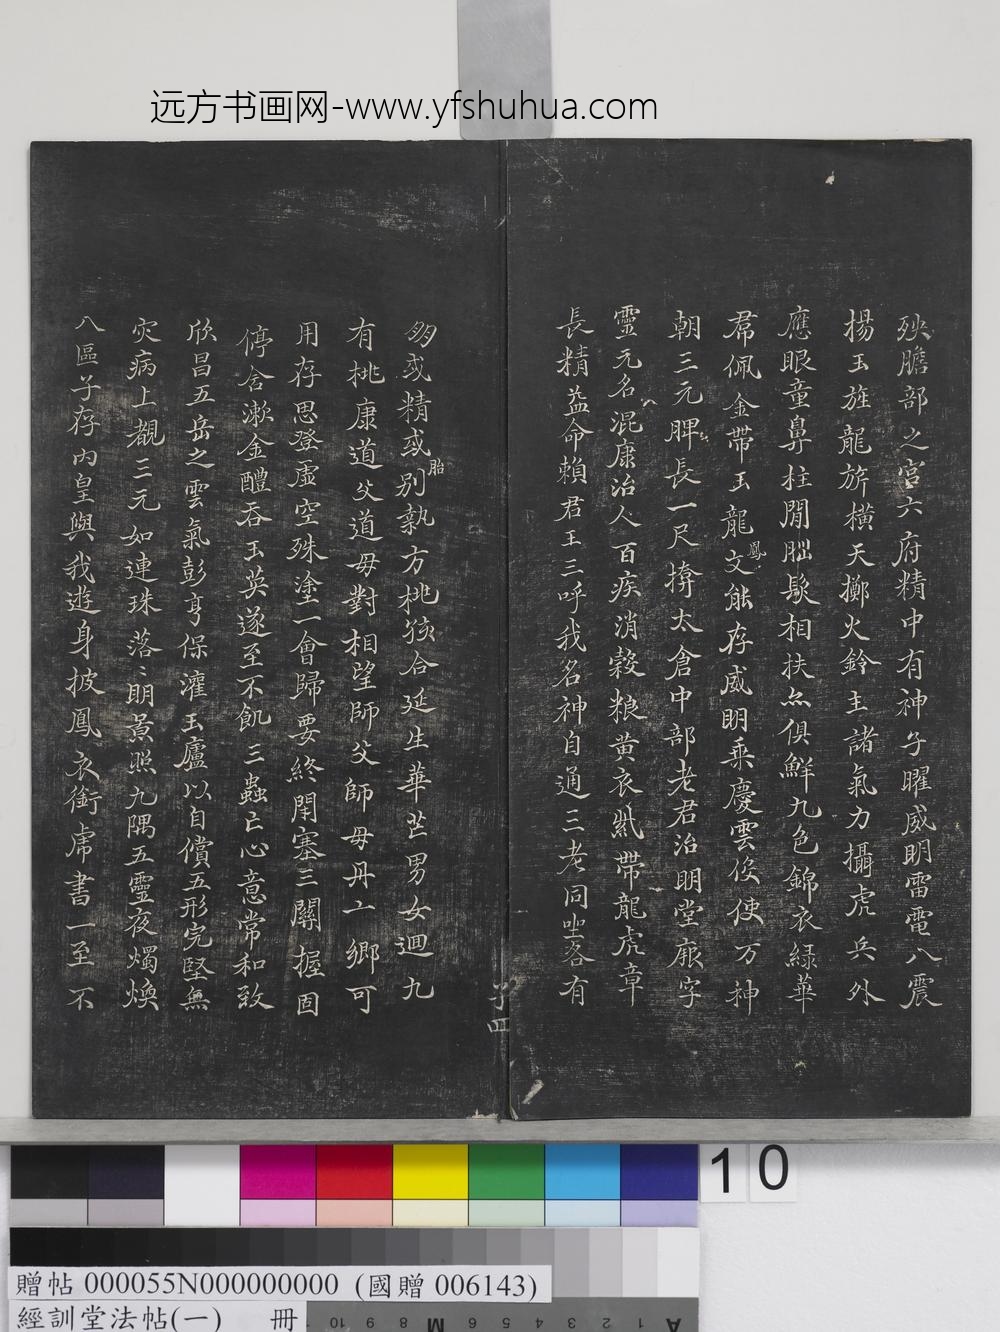 远方书画网-www.yfshuhua.com
殃膽部之宮六府精中有神子曜威明雷電八震
揚玉旌龍旂橫天擲火鈴主諸氣力攝虎兵外
應眼童鼻柱閒腦髮相扶亦俱鮮九色錦衣綠華
帬佩金帶玉龍文鳳能存威明乘慶雲役使万神
朝三元脾長一尺掩太倉中部老君治明堂厥字
靈元名混康治人百疾消穀粮黄衣紫帶龍虎章
長精益命賴君王三呼我名神自通三老同坐各有
朋或精或胎別執方桃孩合延生華芒男女迴九
有桃康道父道母對相望師父師母丹亠鄉可
用存思登虛空殊塗一會歸要終閉塞三關握固
停含漱金醴吞玉英遂至不飢三蟲亡心意常和致
欣昌五岳之雲氣彭亨保灌玉廬以自償五形完堅無
灾病上覩三元如連珠落〻明景照九隅五靈夜燭煥
八區子存内皇與我遊身披鳳衣銜虎書一至不
子四
10
贈帖 000055N000000000 (國贈 006143)
經訓堂法帖(一) 冊
10 9 8 M 6 5 4 3 2 1 A